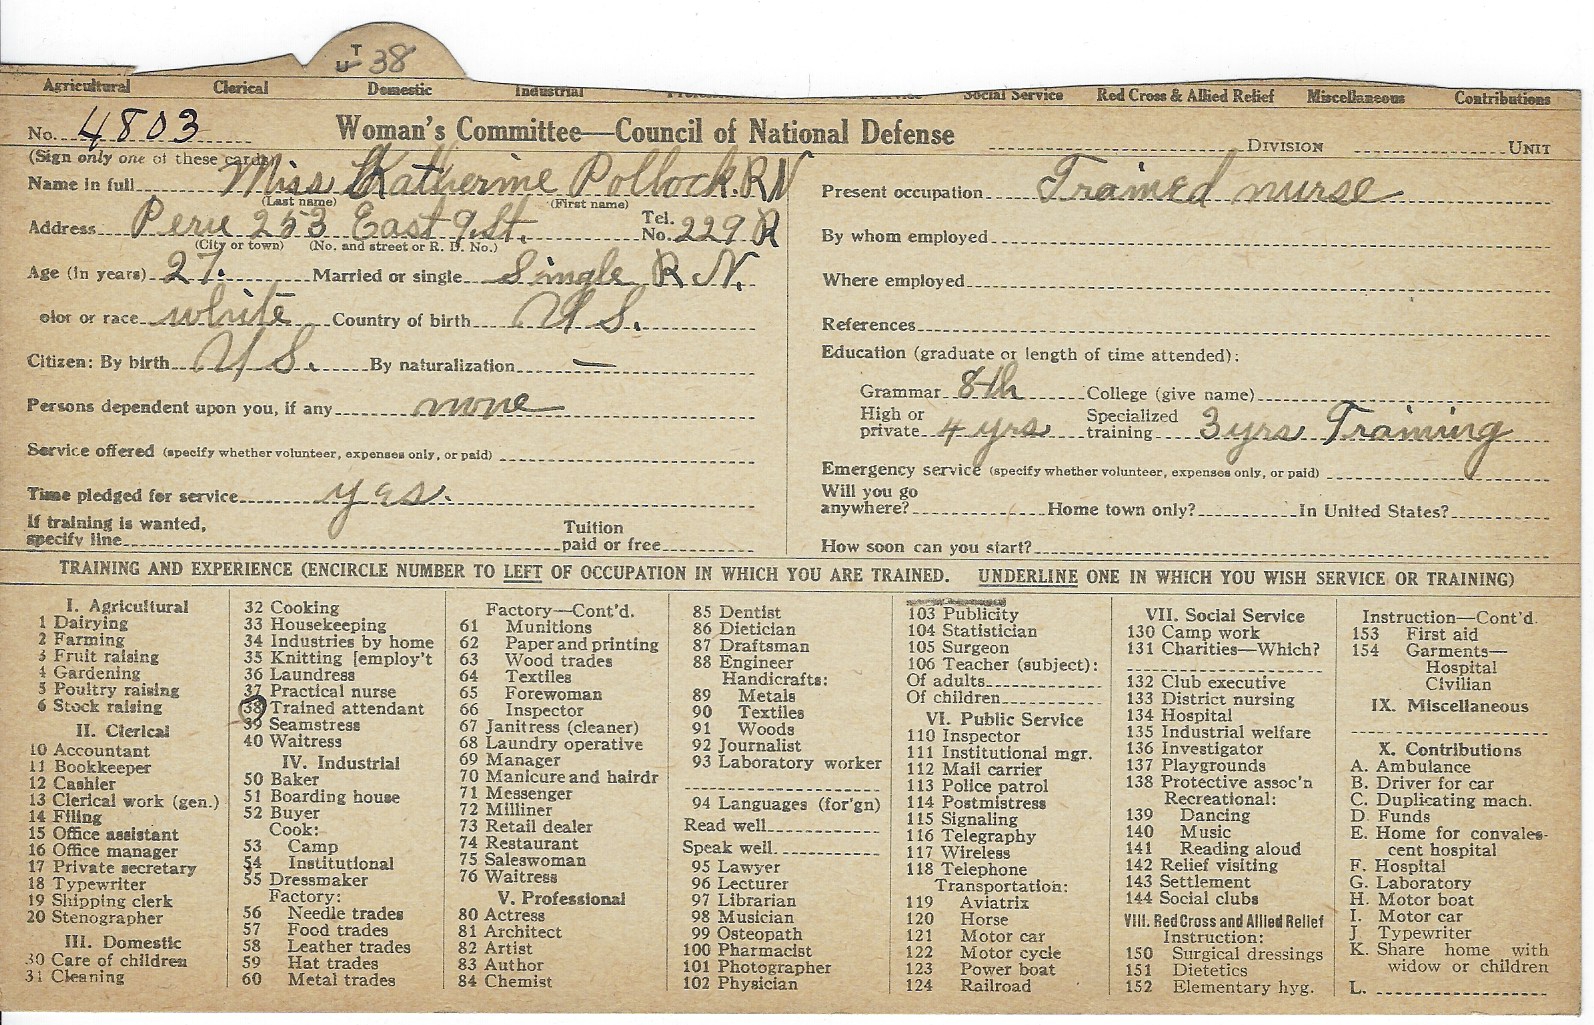 T
U 38
Agricultural Clerical Domestic Industrial Social Service Red Cross & Allied Relief Miscellaneous Contributions
No. 4803 Woman's Committee—Council of National Defense DIVISION UNIT
(Sign only one of these cards)
Name in full Miss Katherine Pollock. RN
(Last name) (First name)
Address Peru 253 East 9. St. Tel. No. 229 R
(City or town) (No. and street or R. D. No.)
Age (in years) 27. Married or single Single R N.
olor or race white Country of birth U S.
Citizen: By birth U S. By naturalization —
Persons dependent upon you, if any none
Service offered (specify whether volunteer, expenses only, or paid)
Time pledged for service yes.
If training is wanted, specify line Tuition paid or free
Present occupation Trained nurse
By whom employed
Where employed
References
Education (graduate or length of time attended):
Grammar 8th College (give name)
High or private 4 yrs Specialized training 3 yrs Training
Emergency service (specify whether volunteer, expenses only, or paid)
Will you go anywhere? Home town only? In United States?
How soon can you start?
TRAINING AND EXPERIENCE (ENCIRCLE NUMBER TO LEFT OF OCCUPATION IN WHICH YOU ARE TRAINED. UNDERLINE ONE IN WHICH YOU WISH SERVICE OR TRAINING)
I. Agricultural
1 Dairying
2 Farming
3 Fruit raising
4 Gardening
5 Poultry raising
6 Stock raising
II. Clerical
10 Accountant
11 Bookkeeper
12 Cashier
13 Clerical work (gen.)
14 Filing
15 Office assistant
16 Office manager
17 Private secretary
18 Typewriter
19 Shipping clerk
20 Stenographer
III. Domestic
30 Care of children
31 Cleaning
32 Cooking
33 Housekeeping
34 Industries by home
35 Knitting [employ't
36 Laundress
37 Practical nurse
38 Trained attendant
39 Seamstress
40 Waitress
IV. Industrial
50 Baker
51 Boarding house
52 Buyer
Cook:
53 Camp
54 Institutional
55 Dressmaker
Factory:
56 Needle trades
57 Food trades
58 Leather trades
59 Hat trades
60 Metal trades
Factory—Cont'd.
61 Munitions
62 Paper and printing
63 Wood trades
64 Textiles
65 Forewoman
66 Inspector
67 Janitress (cleaner)
68 Laundry operative
69 Manager
70 Manicure and hairdr
71 Messenger
72 Milliner
73 Retail dealer
74 Restaurant
75 Saleswoman
76 Waitress
V. Professional
80 Actress
81 Architect
82 Artist
83 Author
84 Chemist
85 Dentist
86 Dietician
87 Draftsman
88 Engineer
Handicrafts:
89 Metals
90 Textiles
91 Woods
92 Journalist
93 Laboratory worker
94 Languages (for'gn)
Read well
Speak well
95 Lawyer
96 Lecturer
97 Librarian
98 Musician
99 Osteopath
100 Pharmacist
101 Photographer
102 Physician
103 Publicity
104 Statistician
105 Surgeon
106 Teacher (subject):
Of adults
Of children
VI. Public Service
110 Inspector
111 Institutional mgr.
112 Mail carrier
113 Police patrol
114 Postmistress
115 Signaling
116 Telegraphy
117 Wireless
118 Telephone
Transportation:
119 Aviatrix
120 Horse
121 Motor car
122 Motor cycle
123 Power boat
124 Railroad
VII. Social Service
130 Camp work
131 Charities—Which?
132 Club executive
133 District nursing
134 Hospital
135 Industrial welfare
136 Investigator
137 Playgrounds
138 Protective assoc'n
Recreational:
139 Dancing
140 Music
141 Reading aloud
142 Relief visiting
143 Settlement
144 Social clubs
VIII. Red Cross and Allied Relief
Instruction:
150 Surgical dressings
151 Dietetics
152 Elementary hyg.
Instruction—Cont'd.
153 First aid
154 Garments—
Hospital
Civilian
IX. Miscellaneous
X. Contributions
A. Ambulance
B. Driver for car
C. Duplicating mach.
D. Funds
E. Home for convales-
cent hospital
F. Hospital
G. Laboratory
H. Motor boat
I. Motor car
J. Typewriter
K. Share home with
widow or children
L.